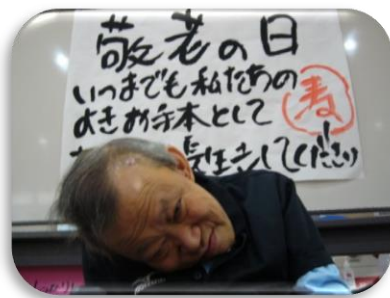 敬老の日
いつまでも私たちの
よきお手本として
長生きしてください
寿